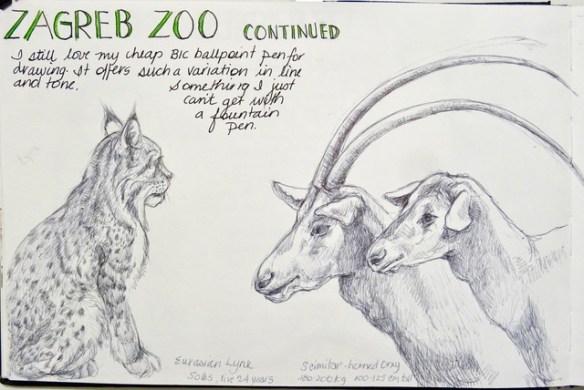 ZAGREB ZOO CONTINUED
I still love my cheap BIC ballpoint pen for
drawing. It offers such a variation in line
and tone. Something I just
can't get with
a fountain
pen.
Lynx
Eurasian Lynx
Solis, live 24 years
Scimitar-horned Oryx
180-200 kg 100-125 cm tall